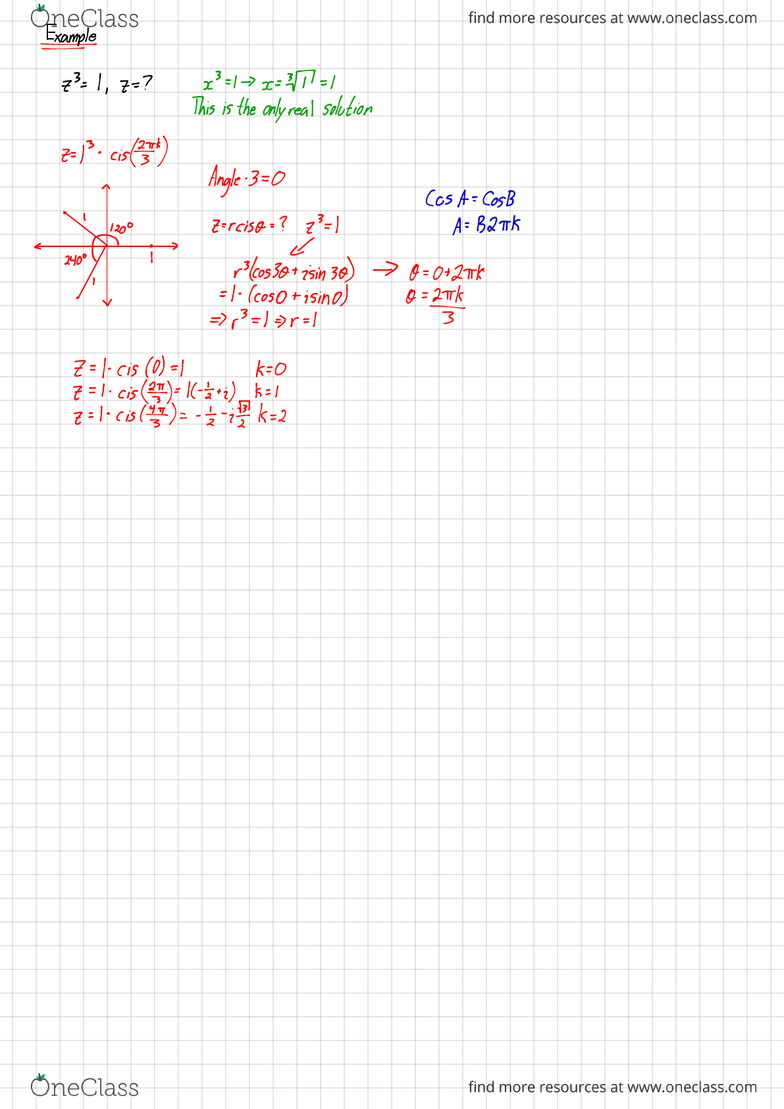 OneClass
find more resources at www.oneclass.com
Example
z³ = 1, z = ?
x³ = 1 → x = ∛1 = 1
This is the only real solution
z = 1³ · cis(2πk/3)
Angle · 3 = 0
Cos A = Cos B
A = B2πk
1
120°
240°
1
1
z = r cis θ = ? z³ = 1
r³(cos3θ + i sin 3θ) → θ = 0 + 2πk
= 1 · (cos0 + i sin0)
θ = 2πk/3
⇒ r³ = 1 ⇒ r = 1
z = 1 · cis (0) = 1 k = 0
z = 1 · cis(2π/3) = 1(-1/2 + i) k = 1
z = 1 · cis(4π/3) = -1/2 - i√3/2 k = 2
OneClass
find more resources at www.oneclass.com